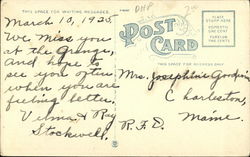 THIS SPACE FOR WRITING MESSAGES
March 10, 1925.
We miss you
at the Grange,
And hope to
see you often
when you are
feeling better.
Velma & Ray
Stockwell.
DHP
POST CARD
THIS SPACE FOR ADDRESS ONLY
PLACE STAMP HERE
DOMESTIC ONE CENT
FOREIGN TWO CENTS
Mrs. Josephine Goodwin
Charleston
Maine.
R.F.D.